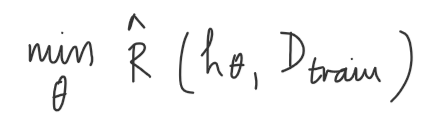 min_θ R̂ (h_θ, D_train)